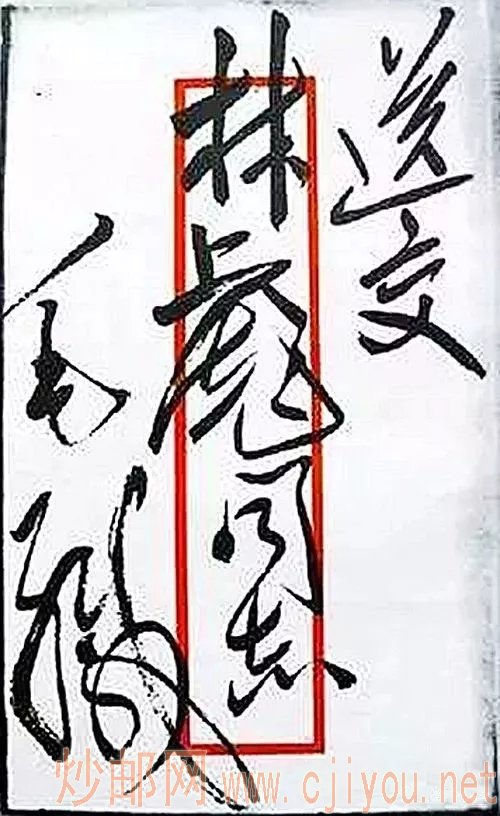 送交
林彪同志
毛
炒邮网 www.cjiyou.net